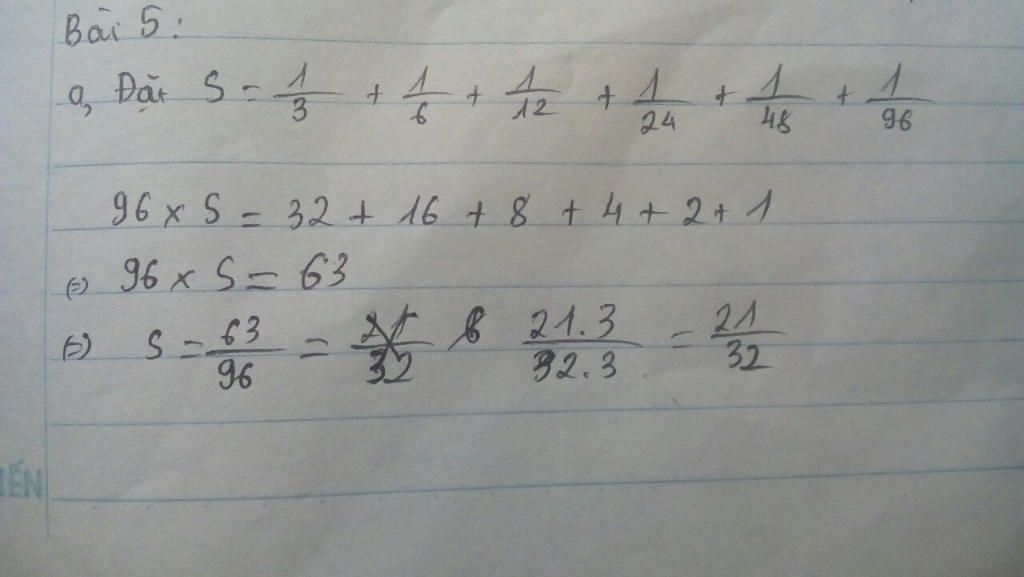 Bài 5:
a, Đặt S = 1/3 + 1/6 + 1/12 + 1/24 + 1/48 + 1/96
96 x S = 32 + 16 + 8 + 4 + 2 + 1
(=) 96 x S = 63
(=) S = 63/96 = 21.3/32.3 = 21/32
IẾN